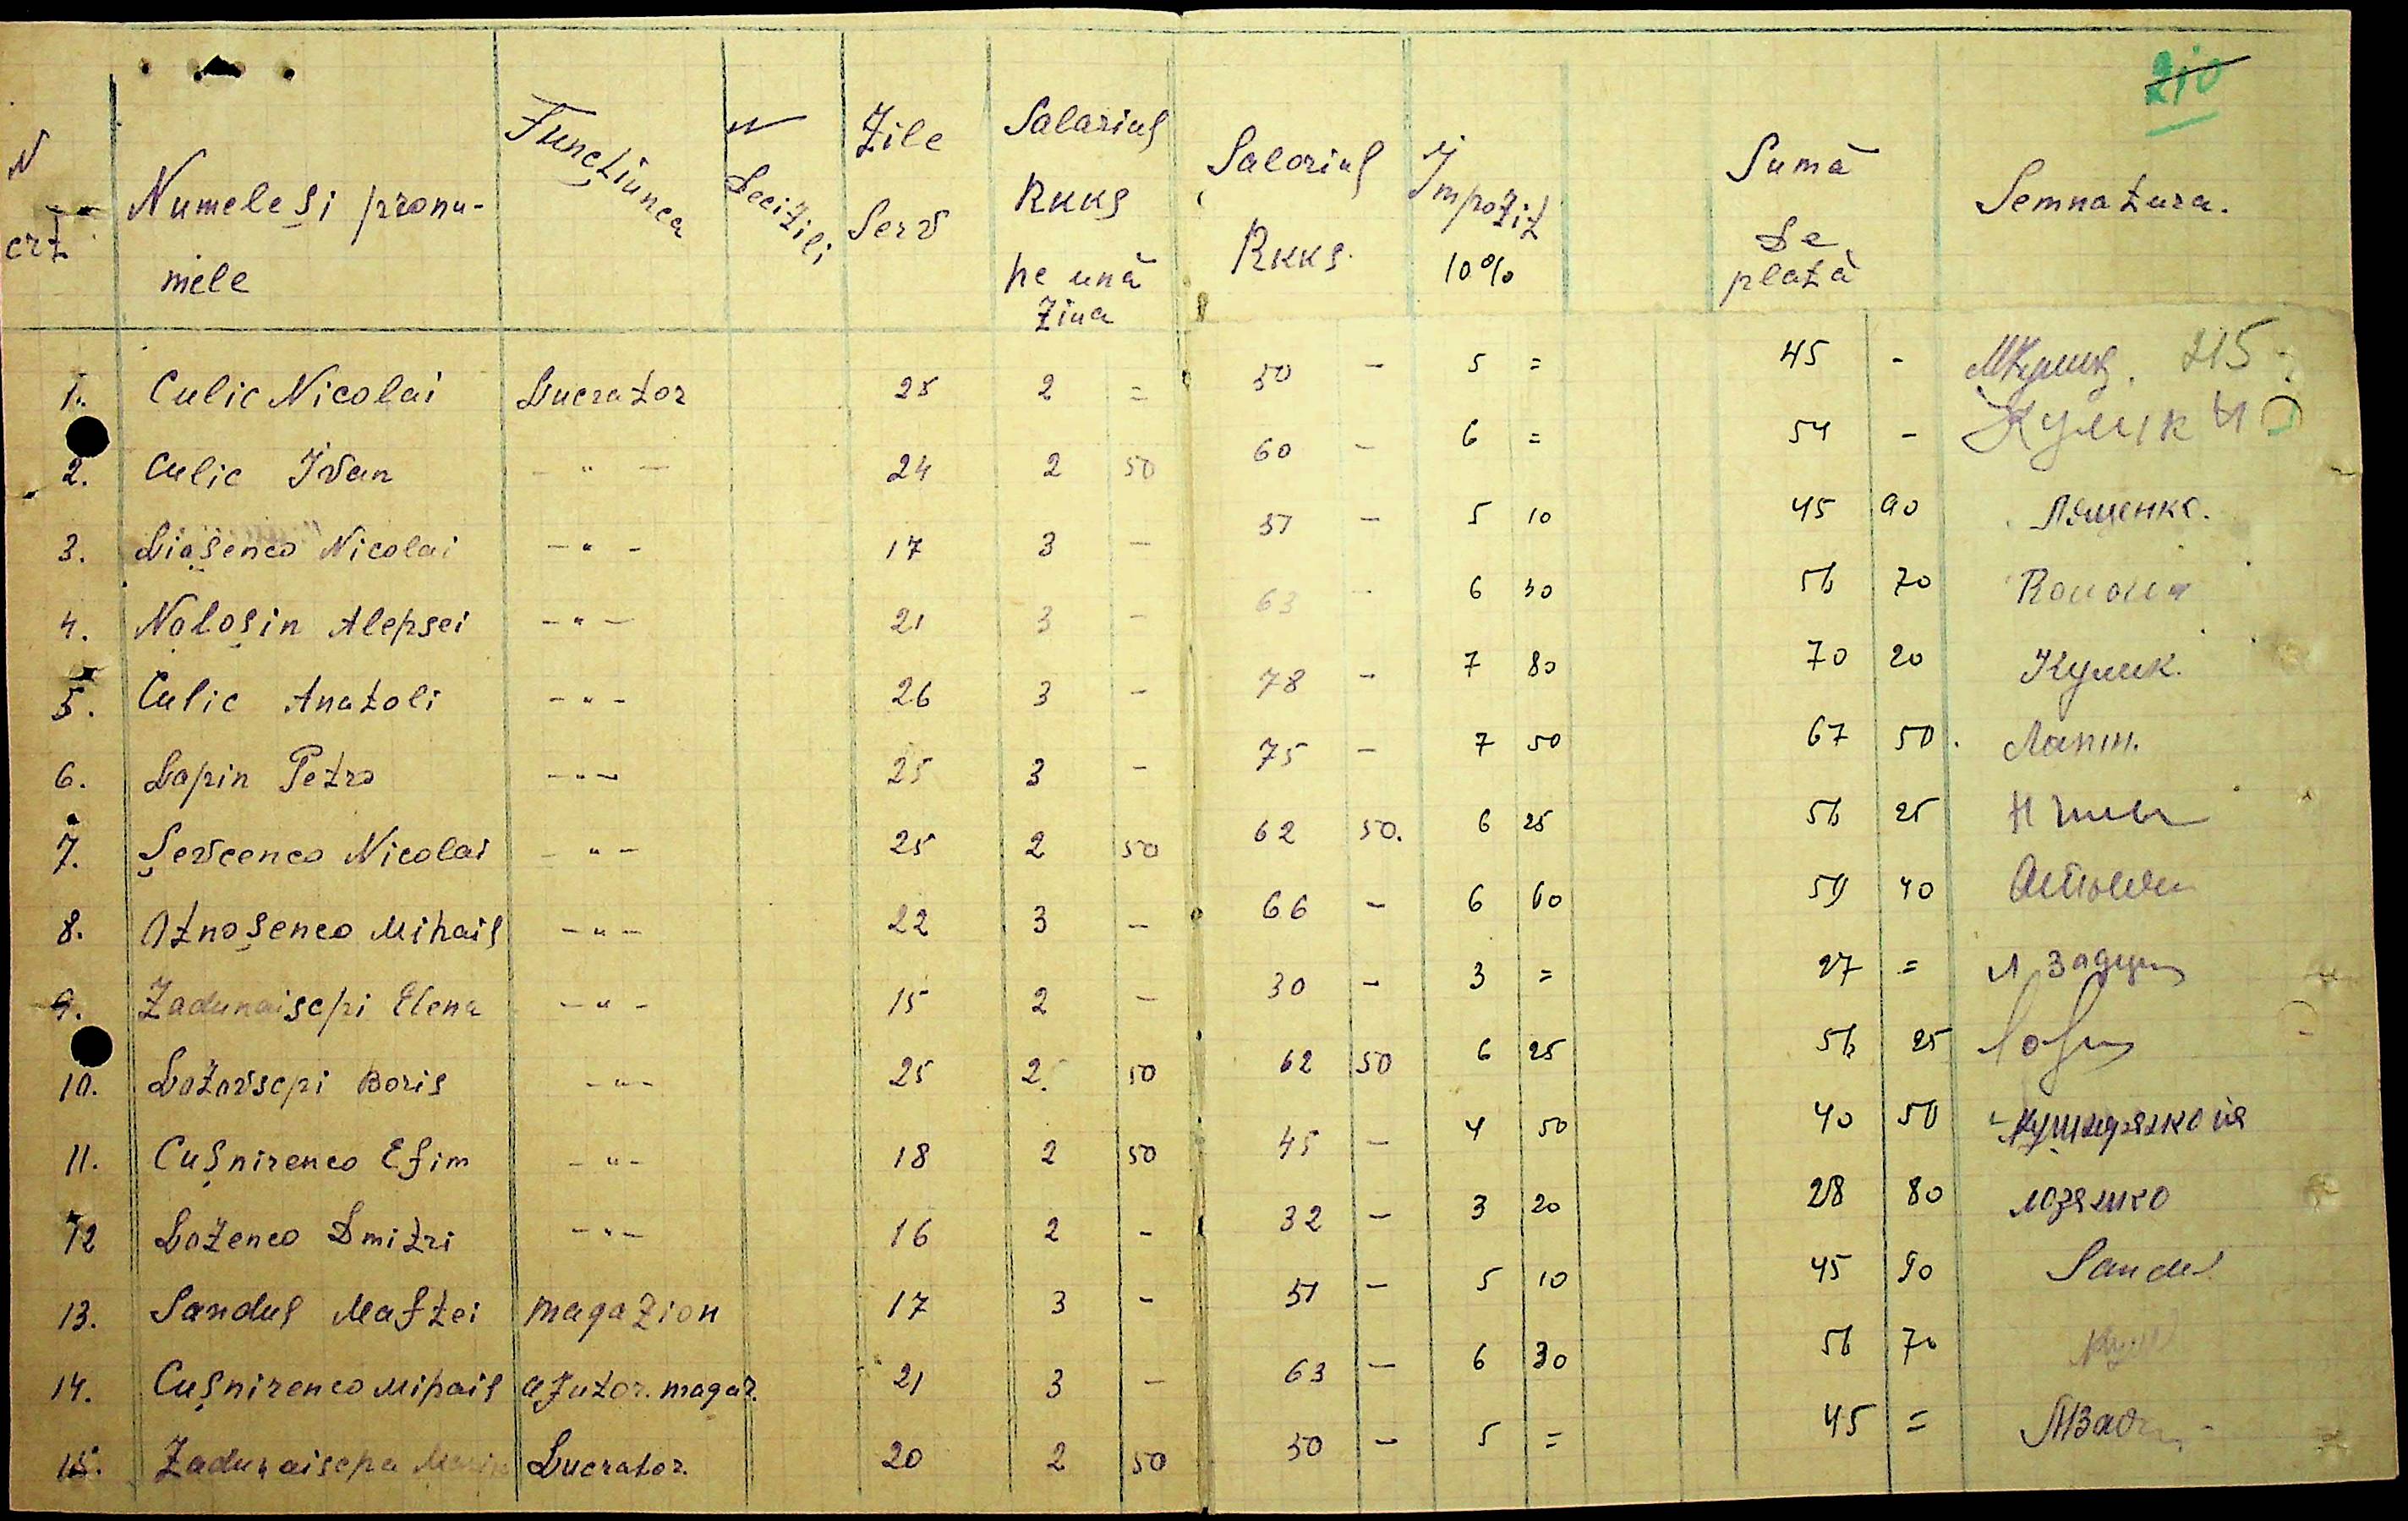 210
N crt Numele și pronumele Funcțiunea N Decizili Zile Serv Salariul RKKS pe ună Ziua Salariul RKKS. Impozit 10% Sumă De plată Semnatura.
215
1. Culic Nicolai Lucrator 25 2 = 50 - 5 = 45 -
2. Culic Ivan - " - 24 2 50 60 - 6 = 54 - Кулик И
3. Liașenco Nicolai - " - 17 3 - 51 - 5 10 45 90 Лященко.
4. Noloșin Alepsei - " - 21 3 - 63 - 6 30 56 70
5. Culic Anatoli - " - 26 3 - 78 - 7 80 70 20 Кулик.
6. Lapin Petro - " - 25 3 - 75 - 7 50 67 50. Лапин.
7. Șevcenco Nicolai - " - 25 2 50 62 50. 6 25 56 25
8. Otnoșenco Mihail - " - 22 3 - 66 - 6 60 59 40
9. Zadunaiscpi Elena - " - 15 2 - 30 - 3 = 27 =
10. Lozovscpi Boris - " - 25 2. 50 62 50 6 25 56 25
11. Cușnirenco Efim - " - 18 2 50 45 - 4 50 40 50
12 Lozenco Dmitri - " - 16 2 - 32 - 3 20 28 80
13. Sandul Maftei magazion 17 3 - 51 - 5 10 45 90 Sandul
14. Cușnirenco Mihail ajutor. magaz. 21 3 - 63 - 6 30 56 70
15. Zadunaiscpa Maria Lucrator. 20 2 50 50 - 5 = 45 =